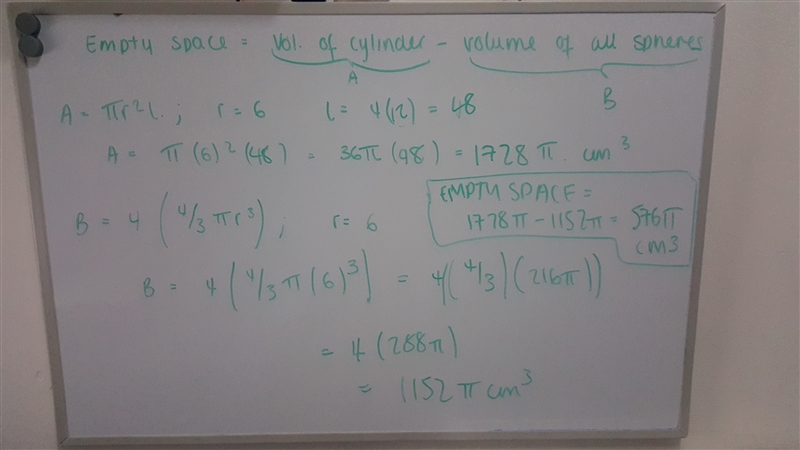 Empty space = Vol. of cylinder - volume of all spheres
A
B
A = πr²l. ; r = 6 l = 4(12) = 48
A = π(6)²(48) = 36π(48) = 1728π. cm³
B = 4(4/3 πr³) ; r = 6
EMPTY SPACE =
1728π - 1152π = 576π
cm3
B = 4(4/3 π(6)³) = 4(4/3)(216π))
= 4(288π)
= 1152π cm³